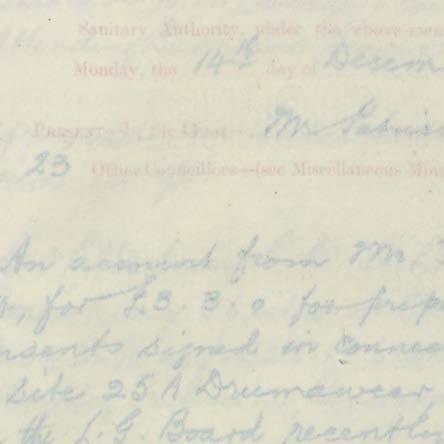 Sanitary Authority, under the above-men
Monday, the 14th day of Decem
PRESENT—In the Chair—, Mr Patrick
23 Other Councillors—(see Miscellaneous Min
An account from Mr.
for £3.3.0 for prep
nsents signed in connec
site 25A Drumawear,
the L.G. Board recently